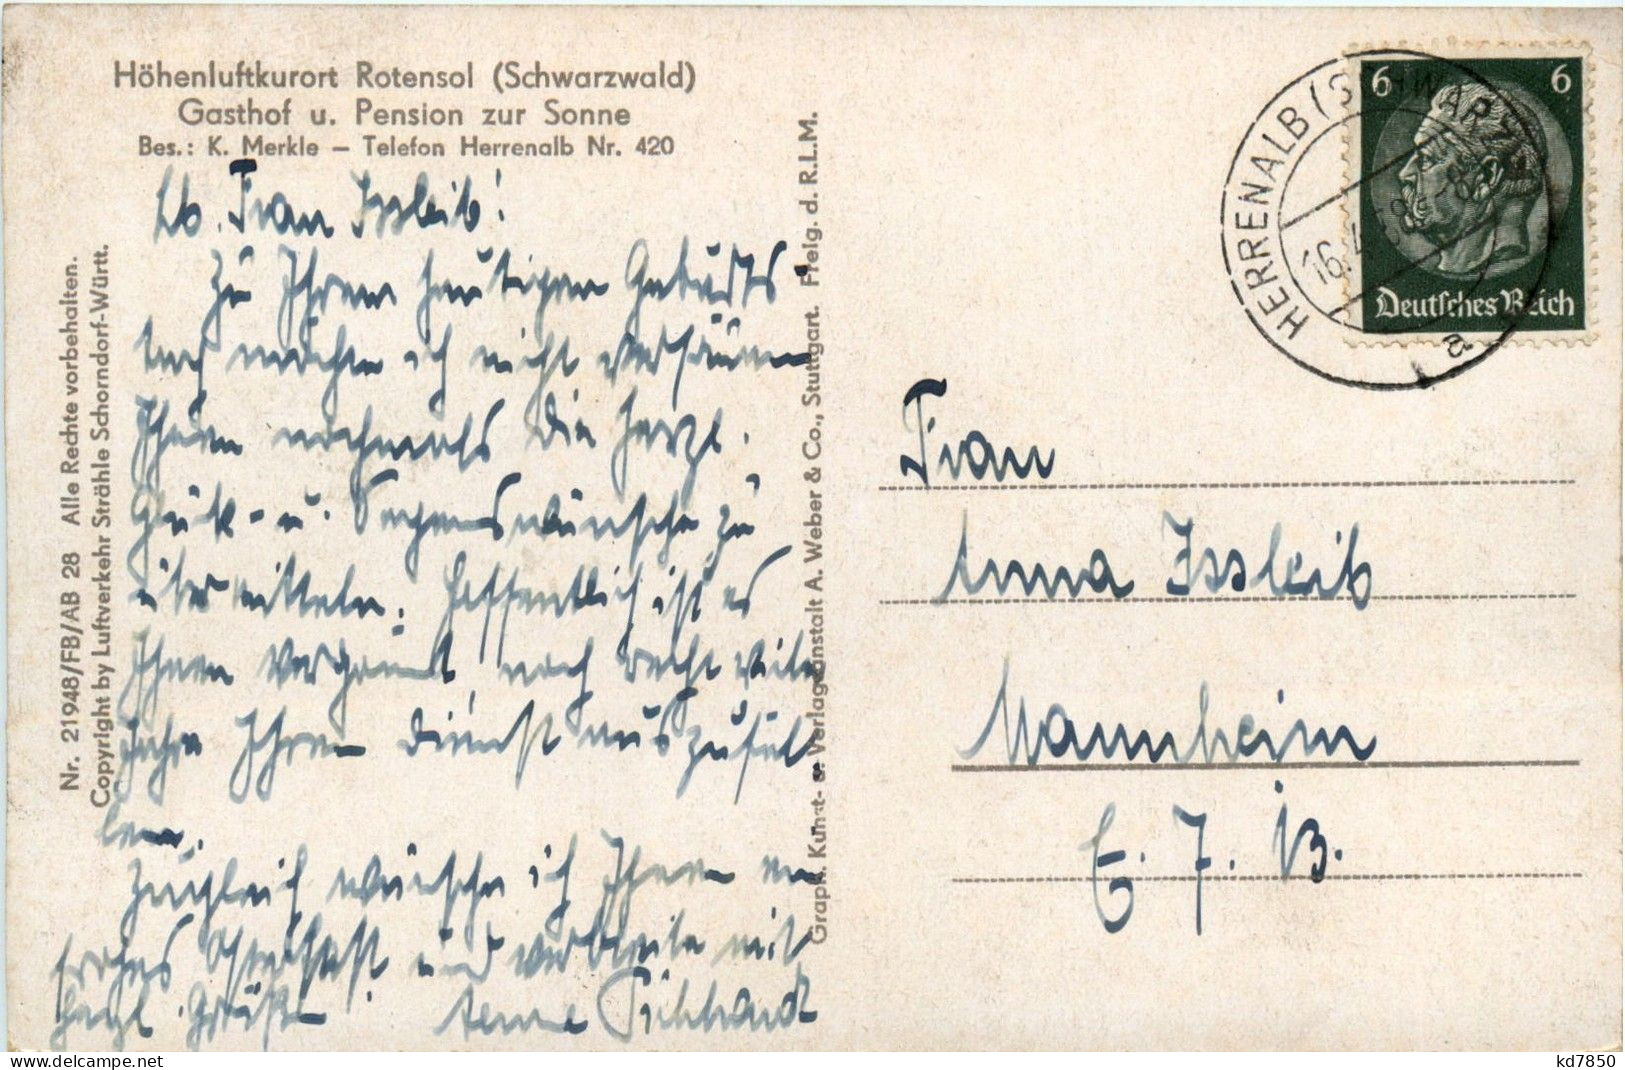 Höhenluftkurort Rotensol (Schwarzwald)
Gasthof u. Pension zur Sonne
Bes.: K. Merkle – Telefon Herrenalb Nr. 420
Lb. Frau Issleib!
Zu Ihrem heutigen Geburts
tag möchte ich nicht versäumen
Ihnen nochmals die herzl.
Glück- u. Segenswünsche zu
übermitteln. Hoffentlich ist es
Ihnen vergönnt, noch recht viele
Jahre Ihren Dienst auszufül
len.
Zugleich wünsche ich Ihnen ein
frohes Osterfest und verbleibe mit
herzl. Grüßen
Nr. 21948/FB/AB 28 Alle Rechte vorbehalten.
Copyright by Luftverkehr Strähle Schorndorf-Württ.
Graph. Kunst- u. Verlagsanstalt A. Weber & Co., Stuttgart. Freig. d. R.L.M.
HERRENALB (SCHWARZW
16.
a
6 6
Deutsches Reich
Frau
Anna Issleib
Mannheim
E. 7. 13.
www.delcampe.net
kd7850